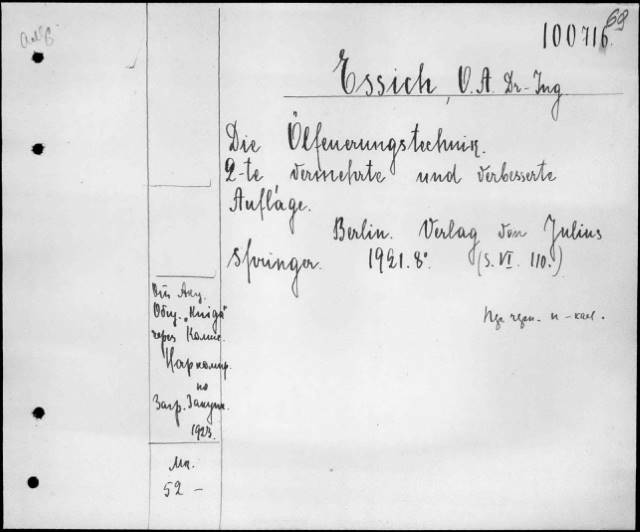 69
100716
Essich, O. A. Dr-Ing
Die Ölfeuerungstechnik.
2-te vermehrte und verbesserte
Auflage.
Berlin. Verlag von Julius
Springer. 1921. 8°. (S. VI. 110.)
Отъ Акц.
Общ. "Kniga"
через Комис.
Наркомпр.
по
Загр. Закупк.
1923.
Мк.
52 -